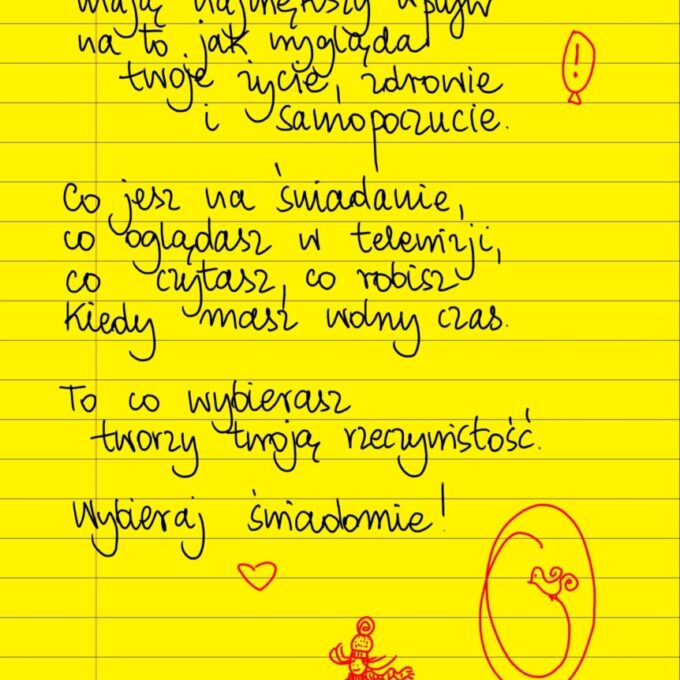 mają największy wpływ
na to jak wygląda
twoje życie, zdrowie
i samopoczucie.
Co jesz na śniadanie,
co oglądasz w telewizji,
co czytasz, co robisz
kiedy masz wolny czas.
To co wybierasz
tworzy twoją rzeczywistość.
Wybieraj świadomie!
!